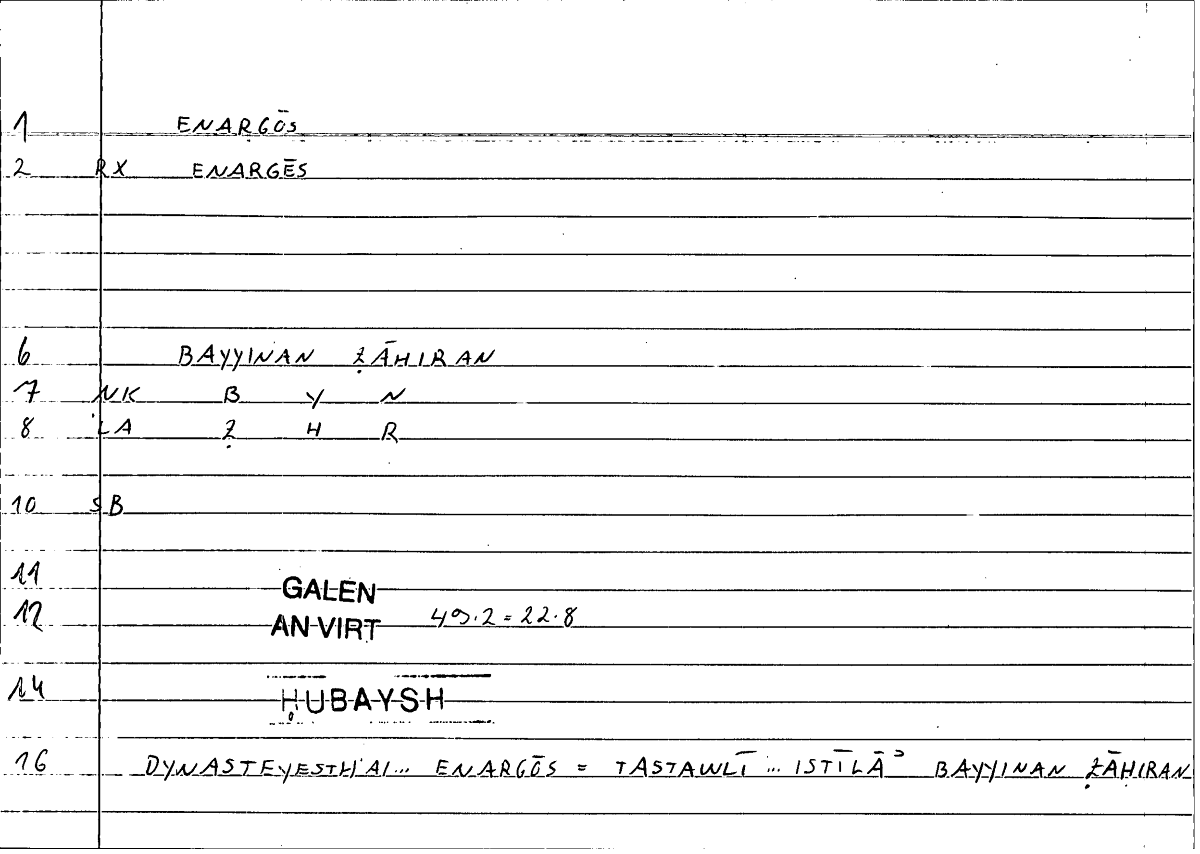 1 ENARGŌS
2 RX ENARGĒS
6 BAYYINAN ẒĀHIRAN
7 NK B Y N
8 LA Ẓ H R
10 SB
11 GALEN
12 AN VIRT 49.2 = 22.8
14 ḤUBAYSH
16 DYNASTEYESTHAI... ENARGŌS = TASTAWLĪ ... ISTĪLĀʾ BAYYINAN ẒĀHIRAN